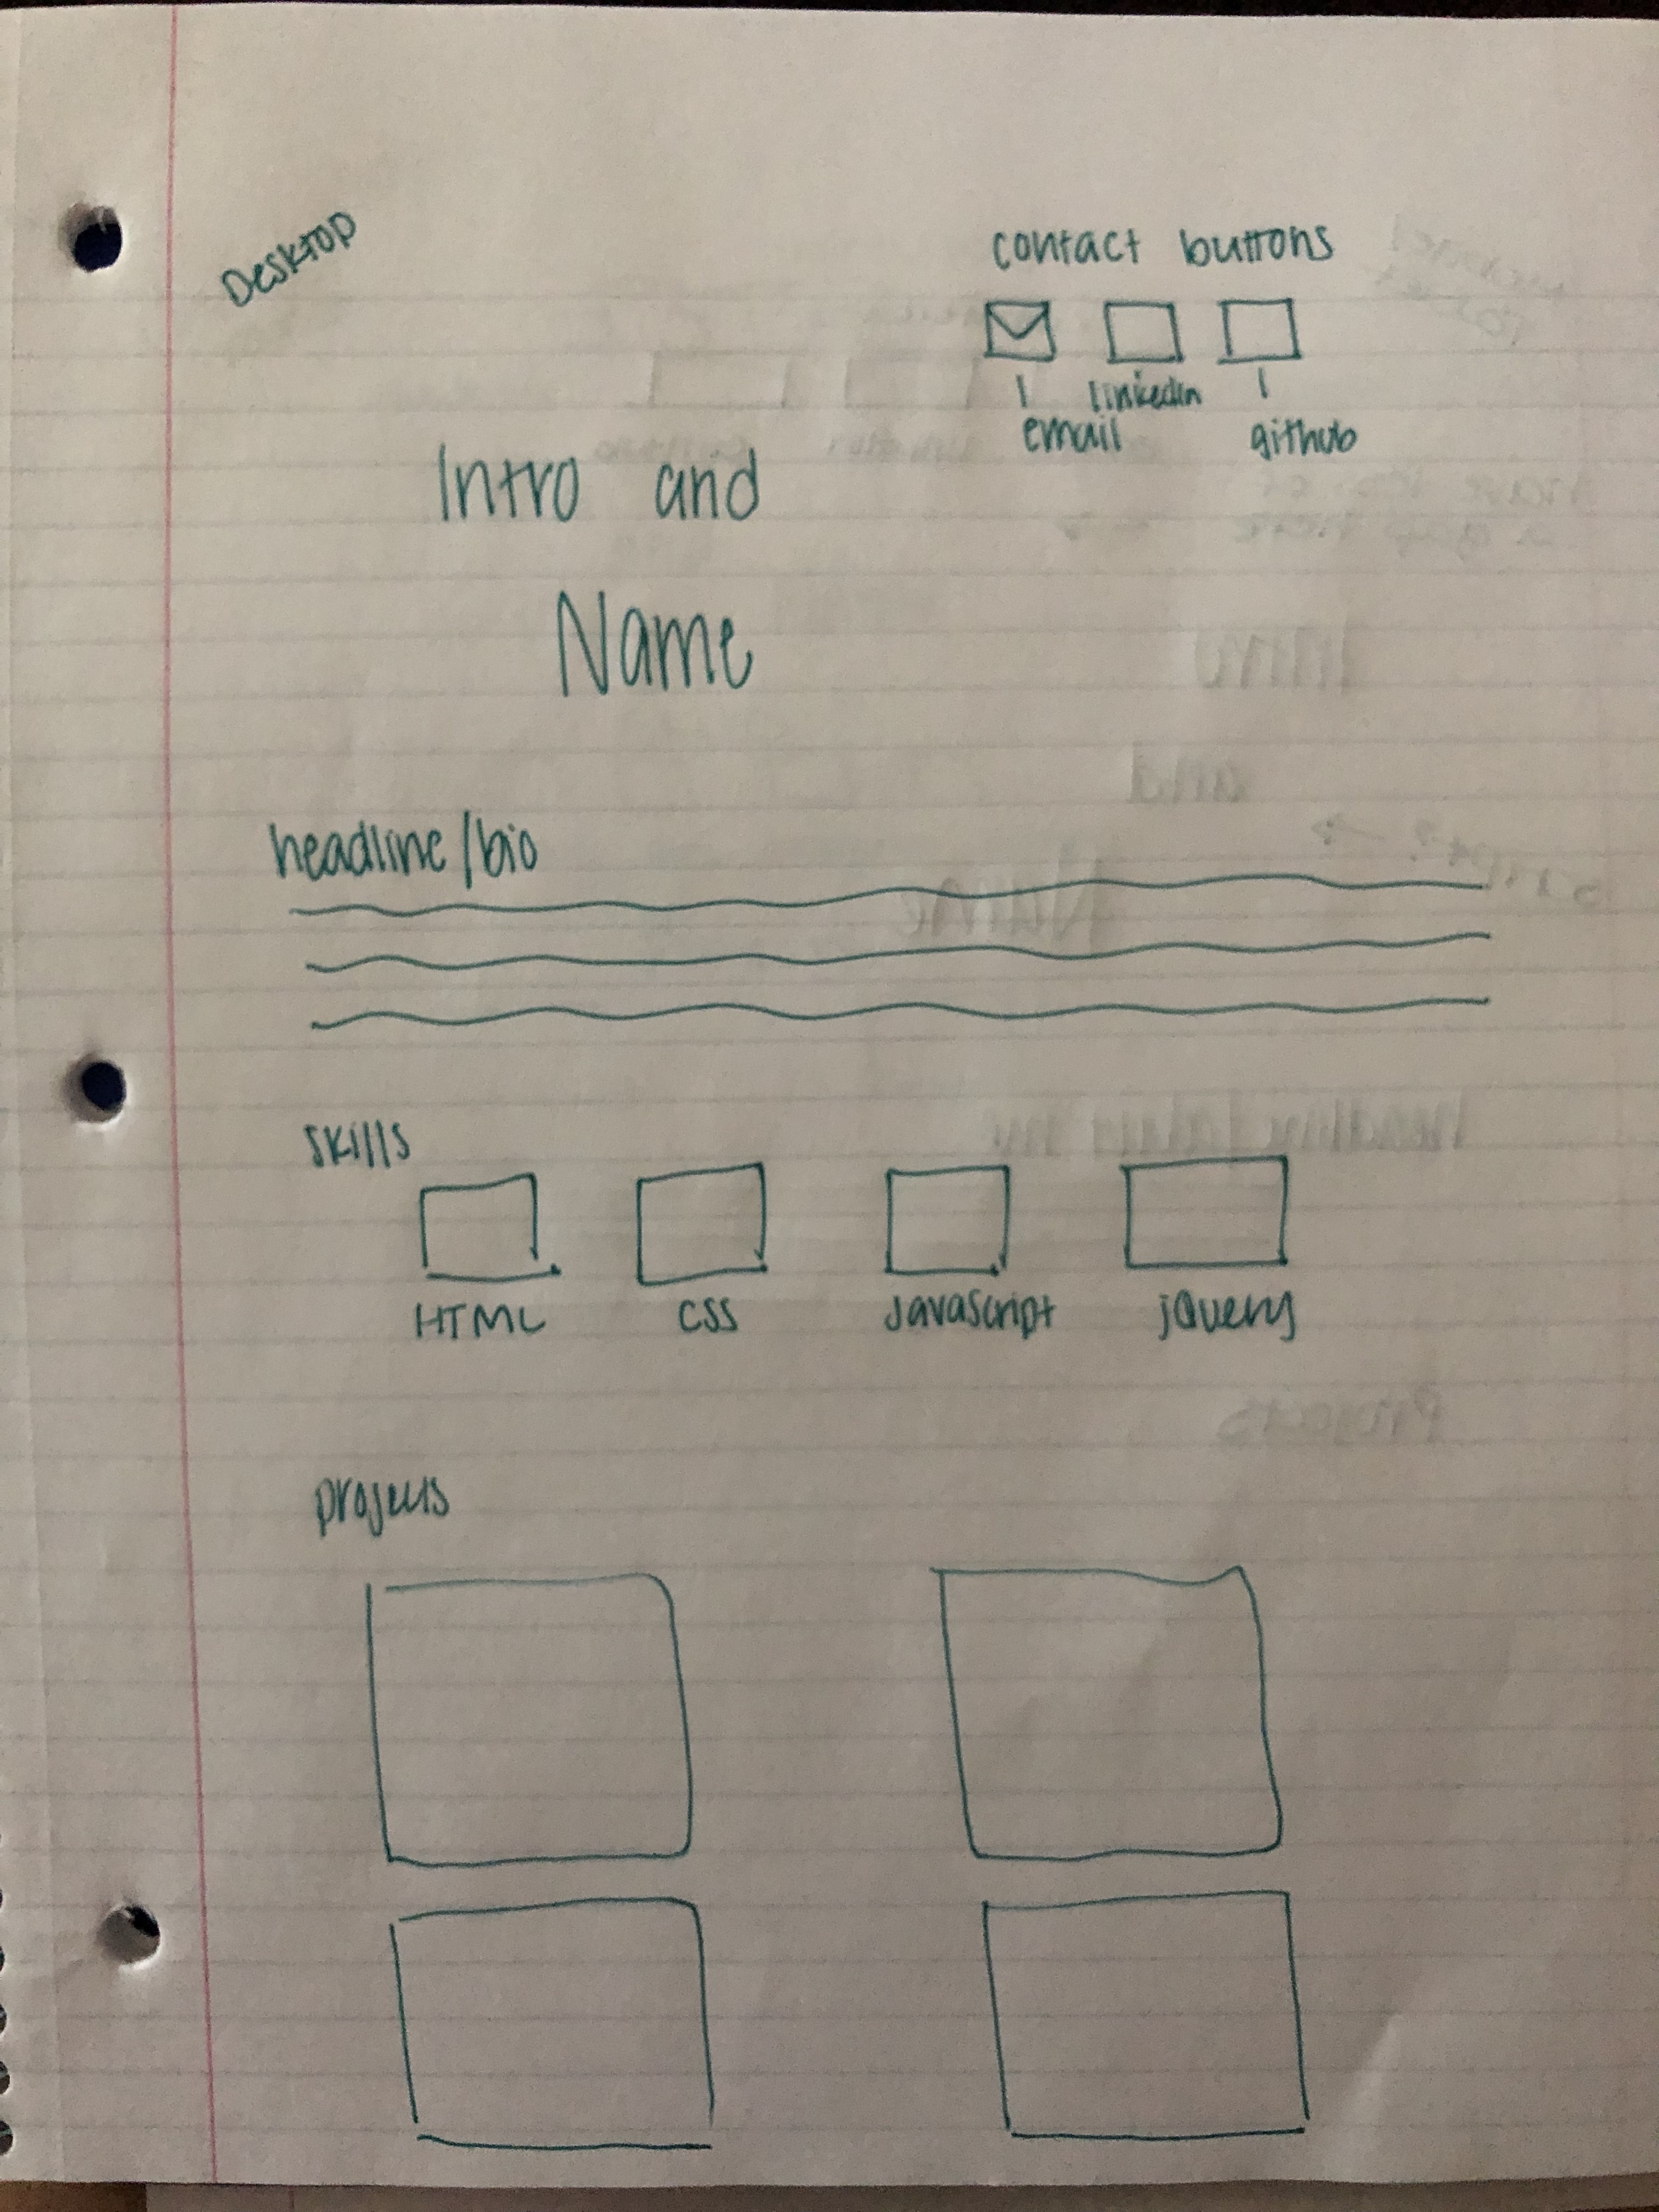 Desktop
contact buttons
linkedin
email github
Intro and
Name
headline/bio
skills
HTML CSS Javascript jQuery
projects